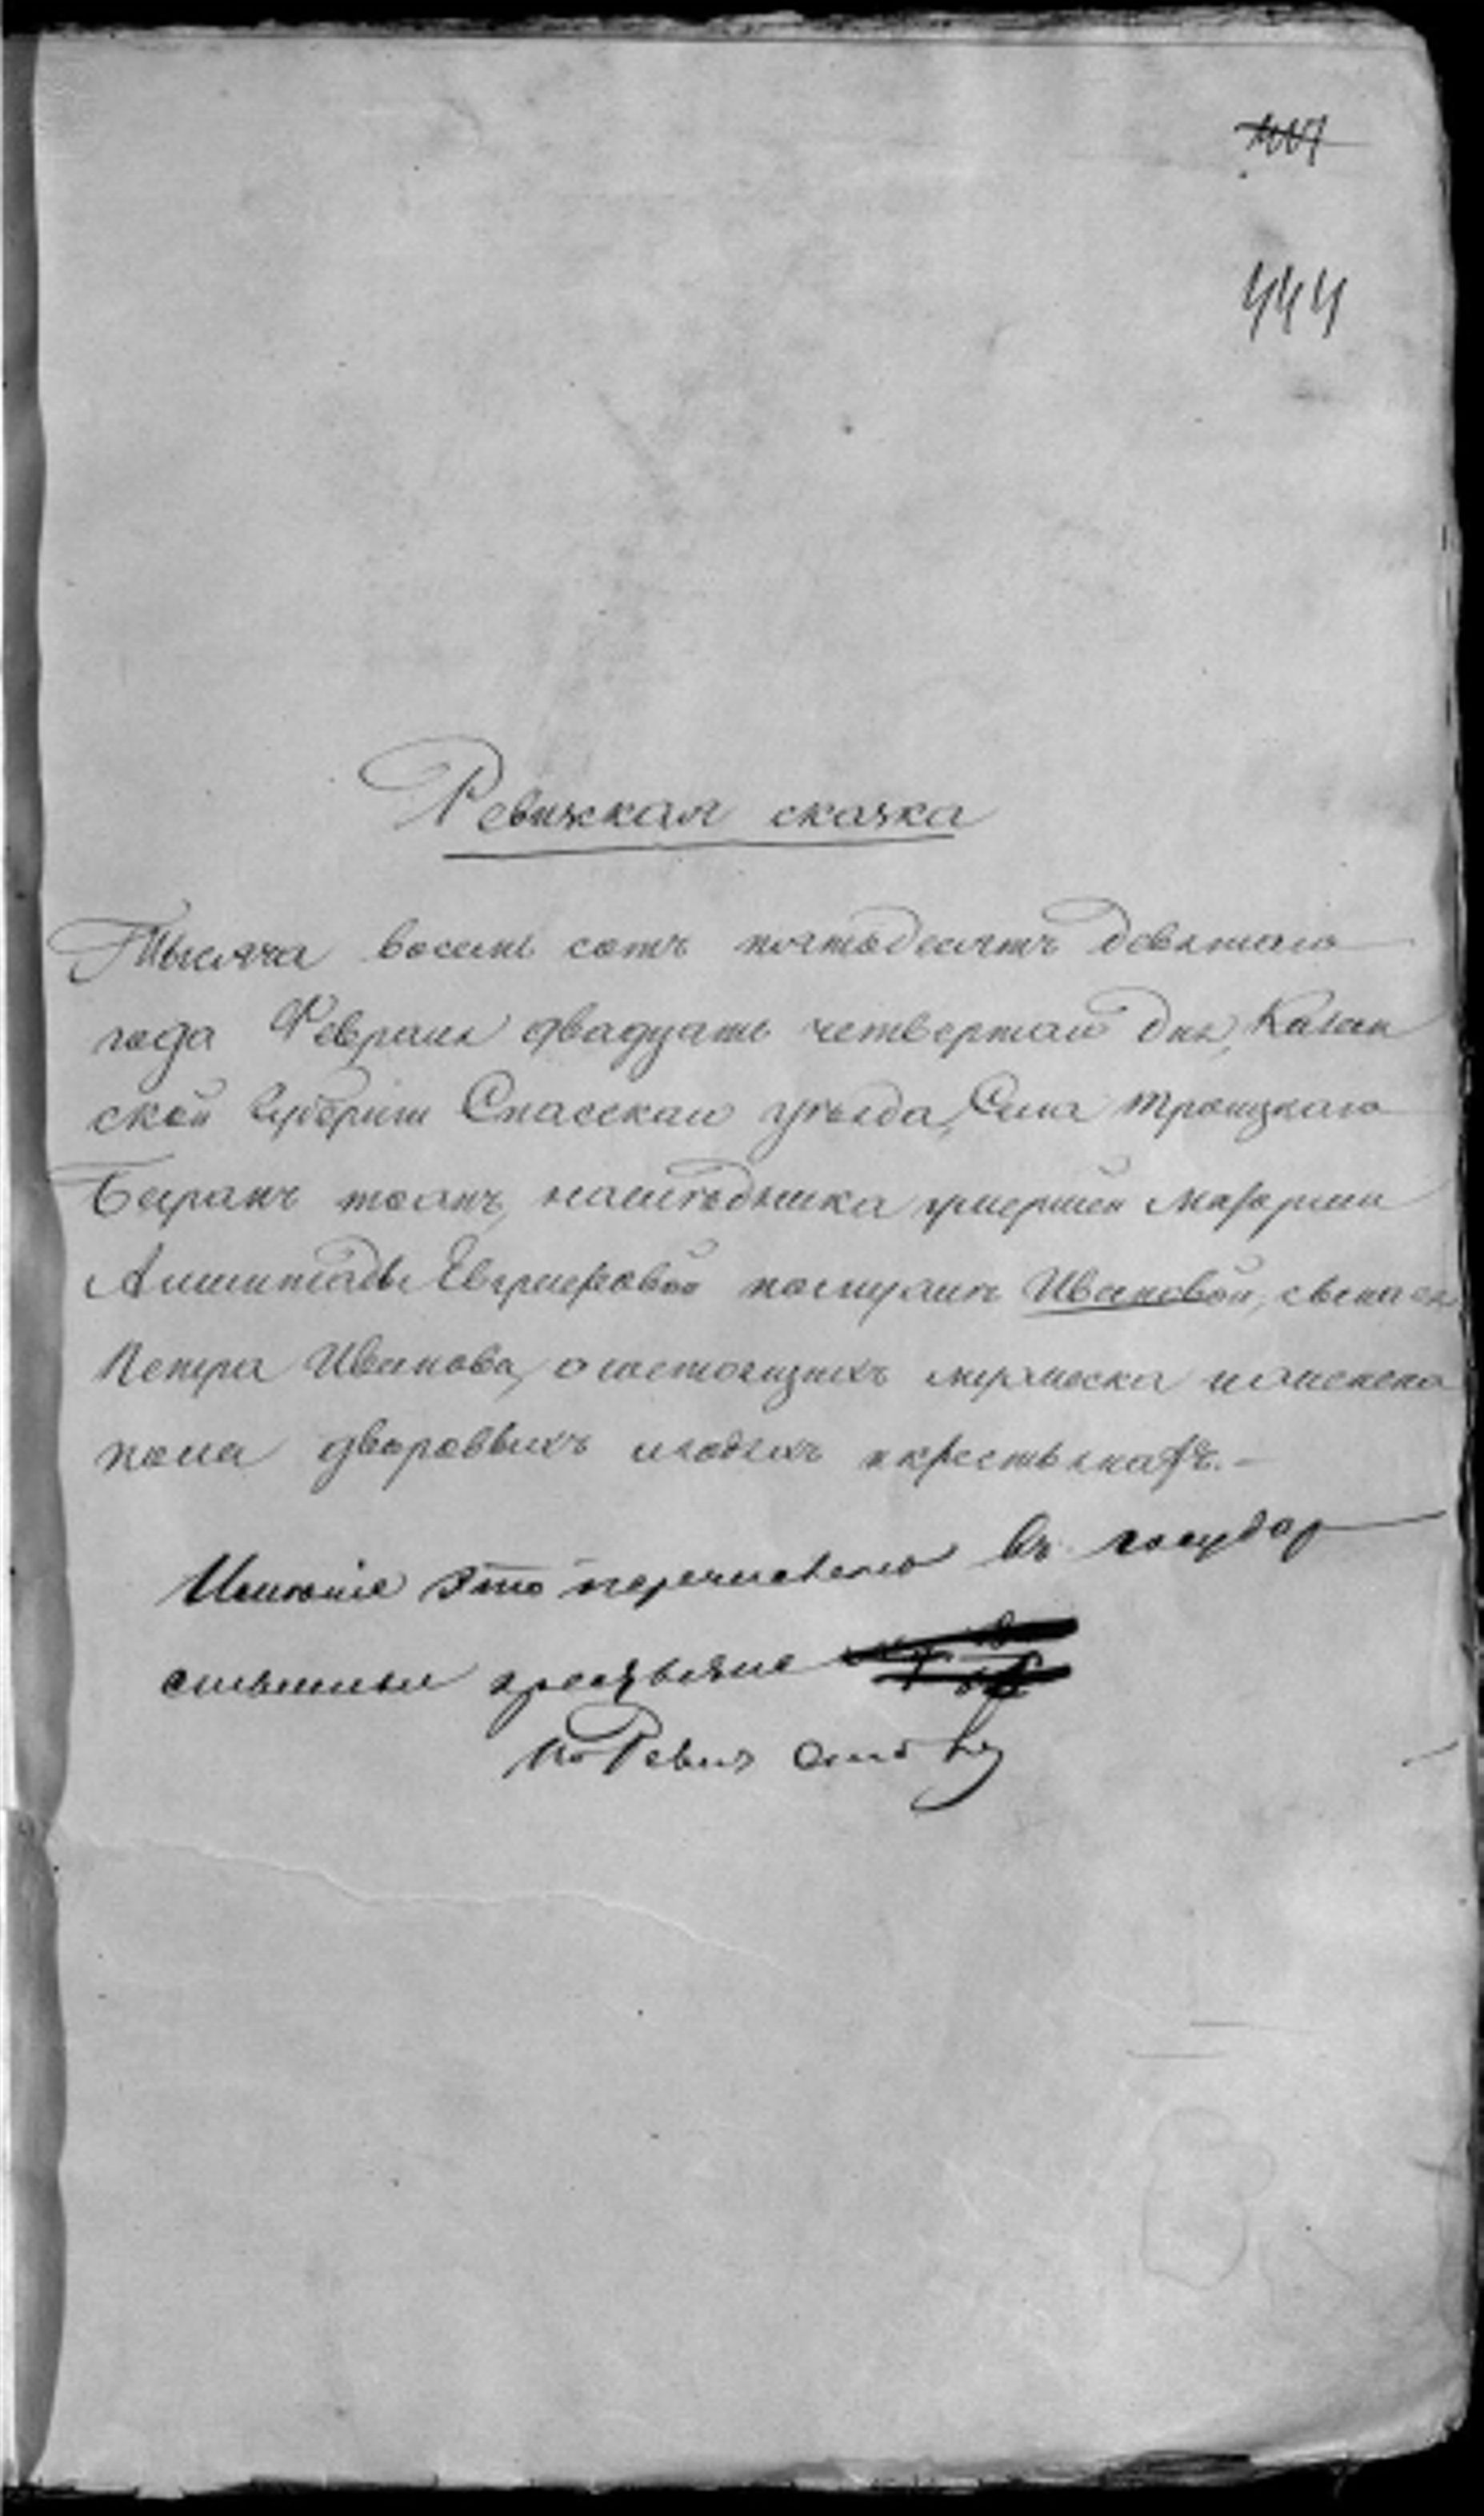 444
Ревижская сказка
Тысяча восемь сотъ пятьдесятъ девятаго
года Февраля двадцать четвертаго дня, Казан
ской Губерніи Спасскаго уѣзда, Села Троицкаго
Бѣиранъ тожъ, наслѣдника умершей Маіорши
Евграфовой по мужѣ Ивановой, сына ея
Петра Иванова, о состоящихъ мужеска и женска
пола дворовыхъ людяхъ и крестьянахъ.—
Имѣніе это перечислено въ государ
ственные крестьяне
по Ревиз